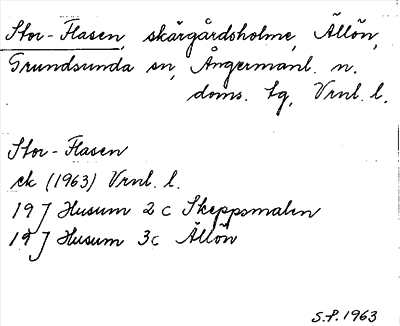 Stor-Flasen, skärgårdsholme, Ällön,
Grundsunda sn, Ångermanl. n.
doms. tg, Vrnl. l.
Stor-Flasen
ek (1963) Vrnl. l.
19 J Husum 2 c Skeppsmalen
19 J Husum 3c Ällön
S.P. 1963